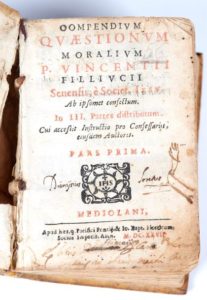 COMPENDIVM
QVÆSTIONVM
MORALIVM
P. VINCENTII
FILLIVCII
Senensis, è Societ. IESV.
Ab ipsomet confectum.
In III. Partes distributum.
Cui accessit Instructio pro Confessarijs,
eiusdem Auctoris.
PARS PRIMA.
IHS
MEDIOLANI,
Apud hæred. Pacifici Pontij, & Io. Bapt.